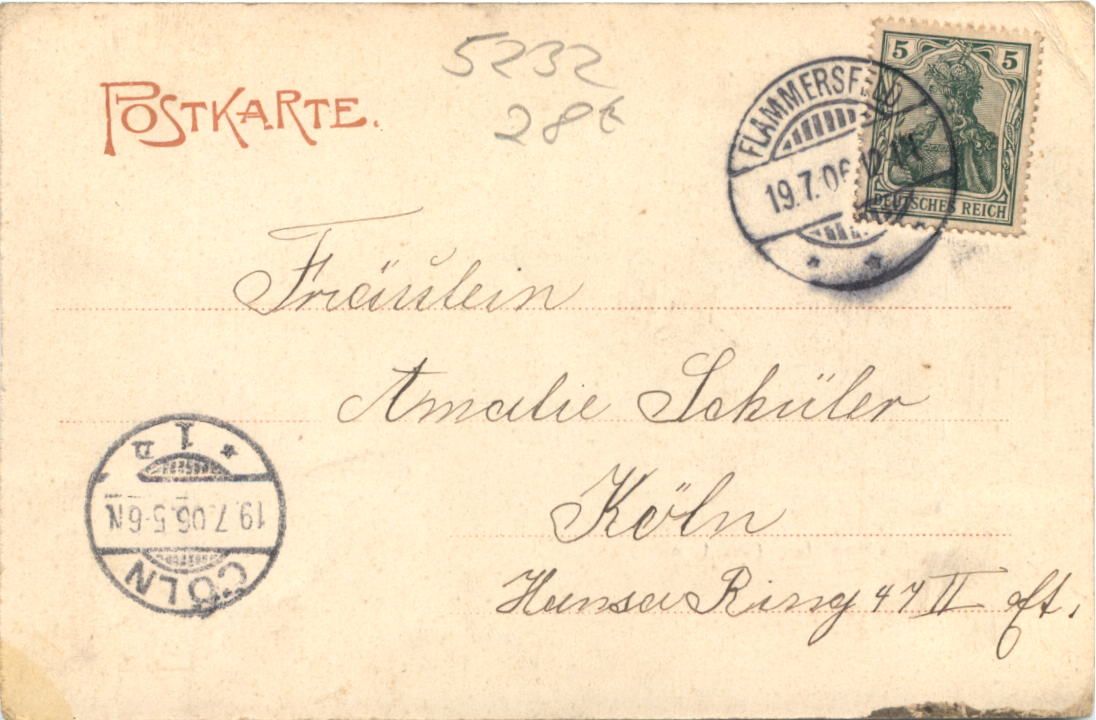 5232
28€
POSTKARTE.
FLAMMERSFELD
19.7.06
5 5
DEUTSCHES REICH
Fräulein
Amalie Schüler
Köln
Hansa Ring 47 II
* 1 n
19.7.06.5-6N.
CÖLN